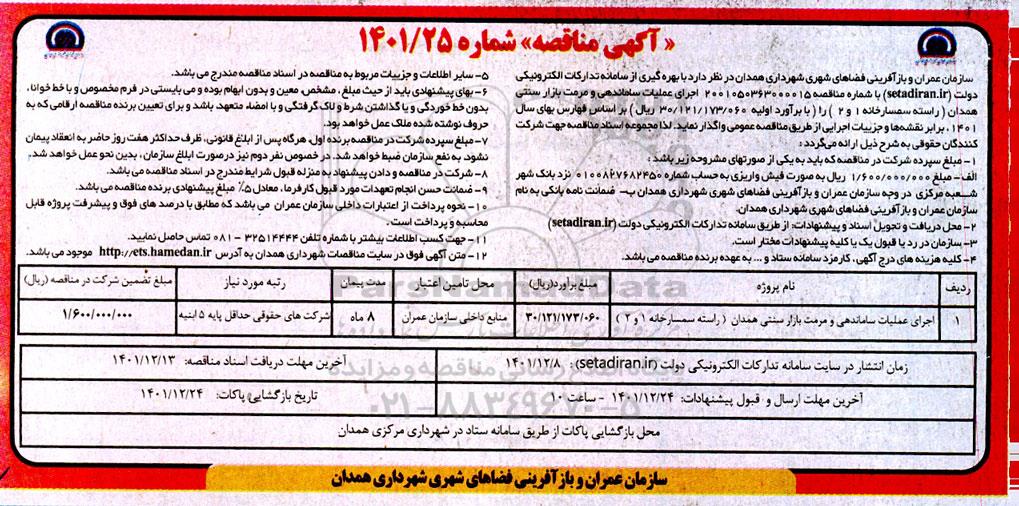 « آگهی مناقصه» شماره ۱۴۰۱/۲۵
سازمان عمران و بازآفرینی فضاهای شهری شهرداری همدان در نظر دارد با بهره گیری از سامانه تدارکات الکترونیکی
دولت (setadiran.ir) با شماره مناقصه ۲۰۰۱۰۵۰۳۶۳۰۰۰۰۱۵ اجرای عملیات ساماندهی و مرمت بازار سنتی
همدان ( راسته سمسارخانه ۱ و ۲ ) را ( با برآورد اولیه ۳۰/۱۲۱/۱۷۳/۰۶۰ ریال) بر اساس فهارس بهای سال
۱۴۰۱، برابر نقشه‌ها و جزییات اجرایی از طریق مناقصه عمومی واگذار نماید. لذا مجموعه اسناد مناقصه جهت شرکت
کنندگان حقوقی به شرح ذیل ارائه می‌گردد :
۱- مبلغ سپرده شرکت در مناقصه که باید به یکی از صورتهای مشروحه زیر باشد :
الف- مبلغ ۱/۶۰۰/۰۰۰/۰۰۰ ریال به صورت فیش واریزی به حساب شماره ۰۱۰۰۸۲۷۶۸۲۴۵۰ نزد بانک شهر
شعبه مرکزی در وجه سازمان عمران و بازآفرینی فضاهای شهری شهرداری همدان ب- ضمانت نامه بانکی به نام
سازمان عمران و بازآفرینی فضاهای شهری شهرداری همدان.
۲- محل دریافت و تحویل اسناد و پیشنهادات: از طریق سامانه تدارکات الکترونیکی دولت (setadiran.ir)
۳- سازمان در رد یا قبول یک یا کلیه پیشنهادات مختار است.
۴- کلیه هزینه های درج آگهی، کارمزد سامانه ستاد و ... به عهده برنده مناقصه می باشد.
۵- سایر اطلاعات و جزییات مربوط به مناقصه در اسناد مناقصه مندرج می باشد.
۶- بهای پیشنهادی باید از حیث مبلغ ، مشخص، معین و بدون ابهام بوده و می بایستی در فرم مخصوص و با خط خوانا،
بدون خط خوردگی و یا گذاشتن شرط و لاک گرفتگی و با امضاء متعهد، باشد و برای تعیین برنده مناقصه ارقامی که به
حروف نوشته شده ملاک عمل خواهد بود.
۷- مبلغ سپرده شرکت در مناقصه برنده اول، هرگاه پس از ابلاغ قانونی، ظرف حداکثر هفت روز حاضر به انعقاد پیمان
نشود، به نفع سازمان ضبط خواهد شد. در خصوص نفر دوم نیز در صورت ابلاغ سازمان، بدین نحو عمل خواهد شد.
۸- شرکت در مناقصه و دادن پیشنهاد به منزله قبول شرایط مندرج در اسناد مناقصه می باشد.
۹- ضمانت حسن انجام تعهدات مورد قبول کارفرما، معادل ۵٪ مبلغ پیشنهادی برنده مناقصه می باشد.
۱۰- نحوه پرداخت از اعتبارات داخلی سازمان عمران می باشد که مطابق با درصد های فوق و پیشرفت پروژه قابل
محاسبه و پرداخت است.
۱۱- جهت کسب اطلاعات بیشتر با شماره تلفن ۳۲۵۱۴۴۴۴ - ۰۸۱ تماس حاصل نمایید.
۱۲- متن آگهی فوق در سایت مناقصات شهرداری همدان به آدرس http://ets.hamedan.ir موجود می باشد.
ردیف نام پروژه مبلغ برآورد(ریال) محل تامین اعتبار مدت پیمان رتبه مورد نیاز مبلغ تضمین شرکت در مناقصه (ریال)
۱ اجرای عملیات ساماندهی و مرمت بازار سنتی همدان ( راسته سمسارخانه ۱ و ۲ ) ۳۰/۱۲۱/۱۷۳/۰۶۰ منابع داخلی سازمان عمران ۸ ماه شرکت های حقوقی حداقل پایه ۵ ابنیه ۱/۶۰۰/۰۰۰/۰۰۰
زمان انتشار در سایت سامانه تدارکات الکترونیکی دولت (setadiran.ir) : ۱۴۰۱/۱۲/۸ آخرین مهلت دریافت اسناد مناقصه: ۱۴۰۱/۱۲/۱۳
آخرین مهلت ارسال و قبول پیشنهادات: ۱۴۰۱/۱۲/۲۴ - ساعت ۱۰ تاریخ بازگشایی پاکات: ۱۴۰۱/۱۲/۲۴
محل بازگشایی پاکات از طریق سامانه ستاد در شهرداری مرکزی همدان
سازمان عمران و بازآفرینی فضاهای شهری شهرداری همدان
ParsNamadData
۰۲۱-۸۸۳۴۹۶۷۰-۵